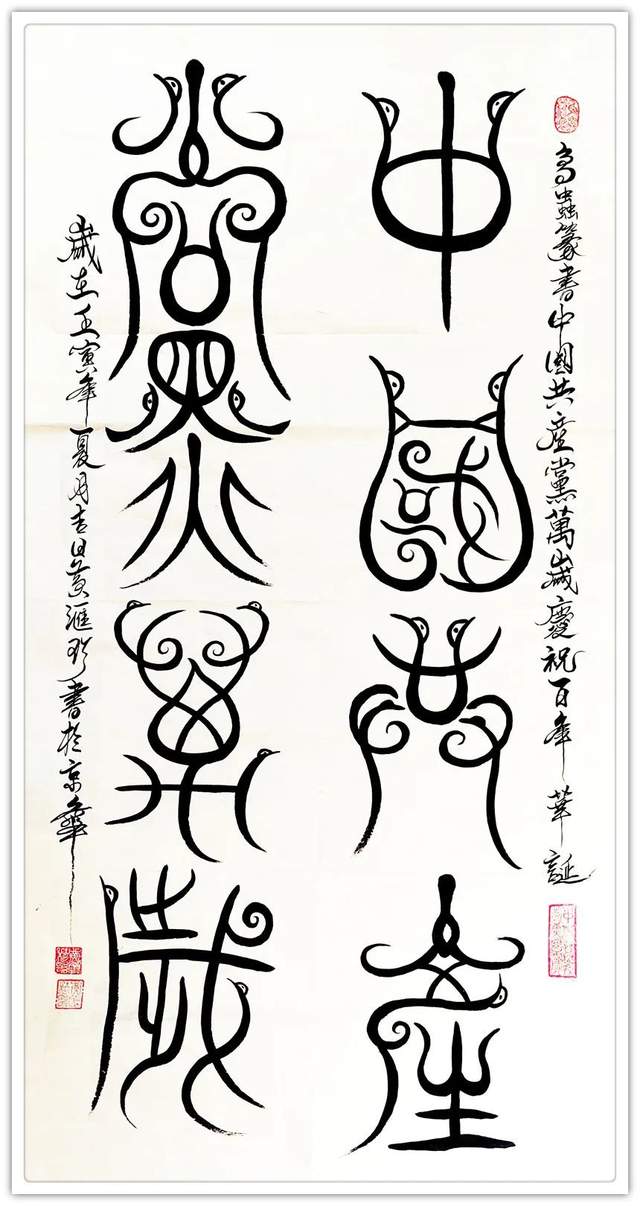 鳥蟲篆書中國共產黨萬歲慶祝百年華誕
中國共產
黨萬歲
歲在壬寅年夏月吉日黃滙珍書於京華